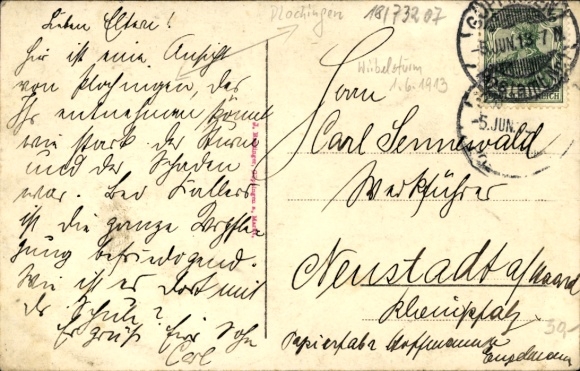 Lieben Eltern!
Hier ist eine Ansicht
von Plochingen, der
Ihr entnehmen könnt
wie stark der Sturm
und der Schaden
war. Bei
ist die ganze Verpfle-
gung befriedigend.
Wie ist es dort mit
der Schule?
Es grüßt Euer Sohn
Carl
Plochingen
18/732 07
Wirbelsturm
1.6.1913
Herrn
Carl Sennewald
Werkführer
Neustadt a/Haardt
Rheinpfalz
Papierfabr Hoffmann &
Engelmann
39,-
5. JUN. 13. 7 N
5. JUN.
REICH